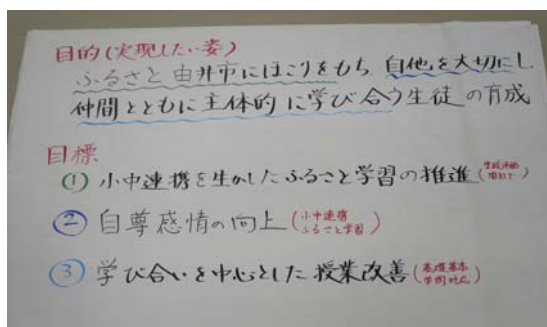 目的(実現したい姿)
ふるさと由井市にほこりをもち、自他を大切にし
仲間とともに主体的に学び合う生徒の育成
目標
① 小中連携を生かしたふるさと学習の推進
② 自尊感情の向上(小中連携 ふるさと学習)
③ 学び合いを中心とした授業改善(基礎基本